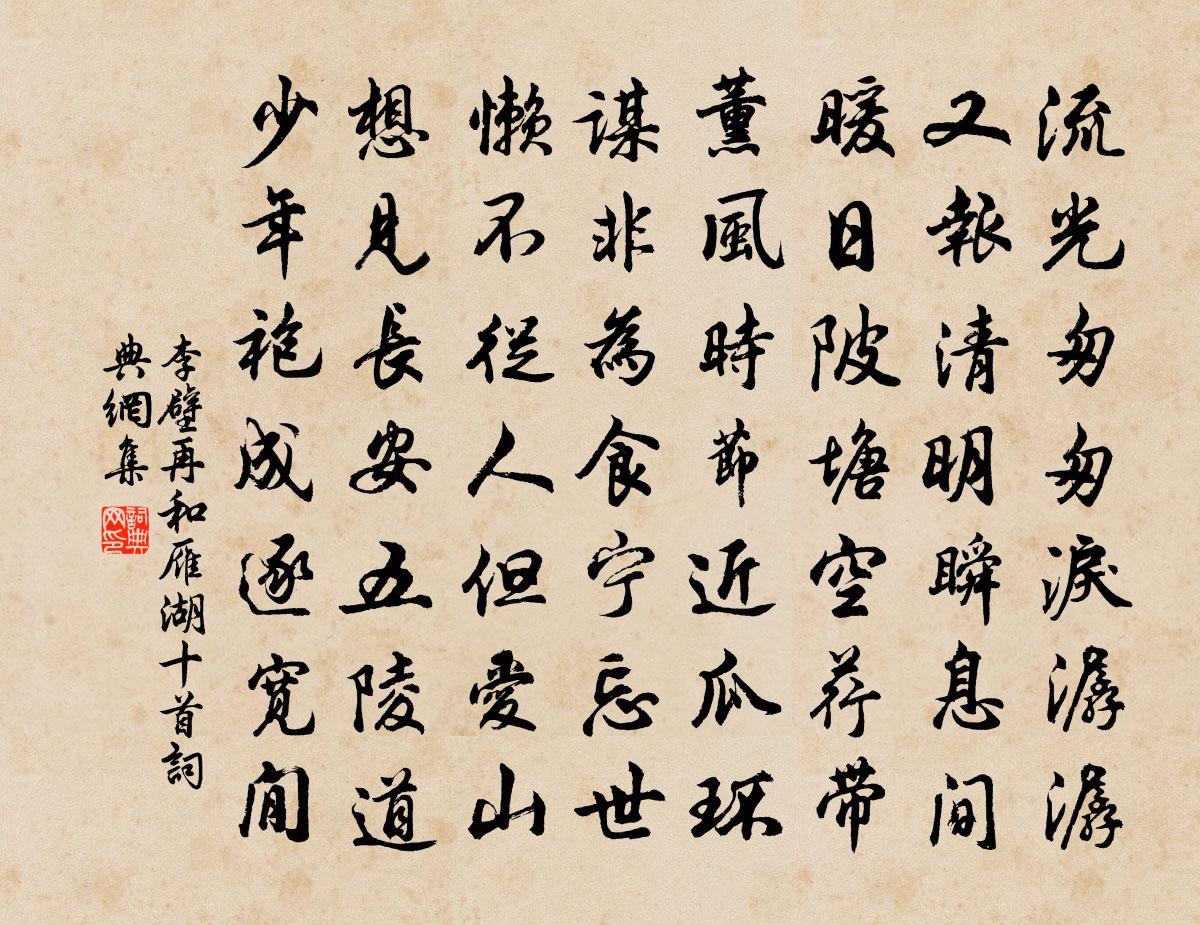 流光匆匆淚潺潺
又報清明瞬息间
暖日陂塘空荇带
薰風時節近瓜環
謀非為食宁忘世
懶不從人但愛山
想見長安五陵道
少年袍成逐寬閒
李壁再和雁湖十首詞
典網集
詞典网印